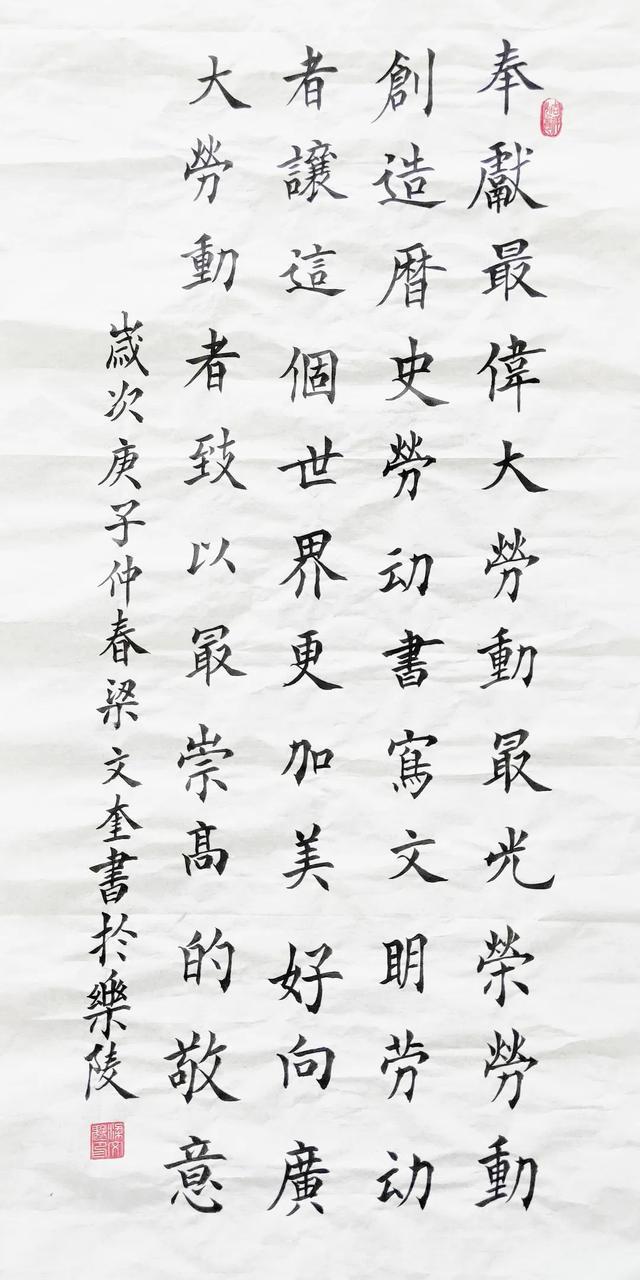 奉獻最偉大勞動最光榮勞動
創造曆史勞动書寫文明劳动
者讓這個世界更加美好向廣
大勞動者致以最崇高的敬意
歲次庚子仲春梁文奎書於樂陵